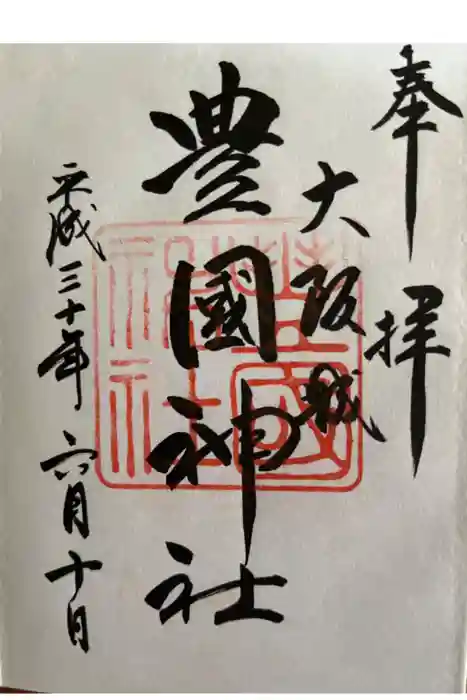 奉拝
大阪城
豊國神社
平成三十年六月十日
豊國
神社